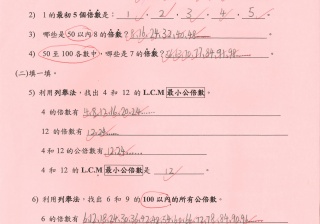 2) 1 的最初 5 個倍數是: 1 , 2 , 3 , 4 , 5 。
3) 哪些是 50 以內 8 的倍數? 8,16,24,32,40,48
4) 50 至 100 各數中,哪些是 7 的倍數? 70,77,84,91,98
(二)填一填。
5) 利用列舉法,找出 4 和 12 的 L.C.M 最小公倍數。
4 的倍數有 4,8,12,16,20,24
12 的倍數有 12,24
4 和 12 的公倍數有 12,24
4 和 12 的 L.C.M 最小公倍數是 12 。
6) 利用列舉法,找出 6 和 9 的 100 以內的所有公倍數。
6 的倍數有 6,12,18,24,30,36,42,48,54,60,66,72,78,84,90,96